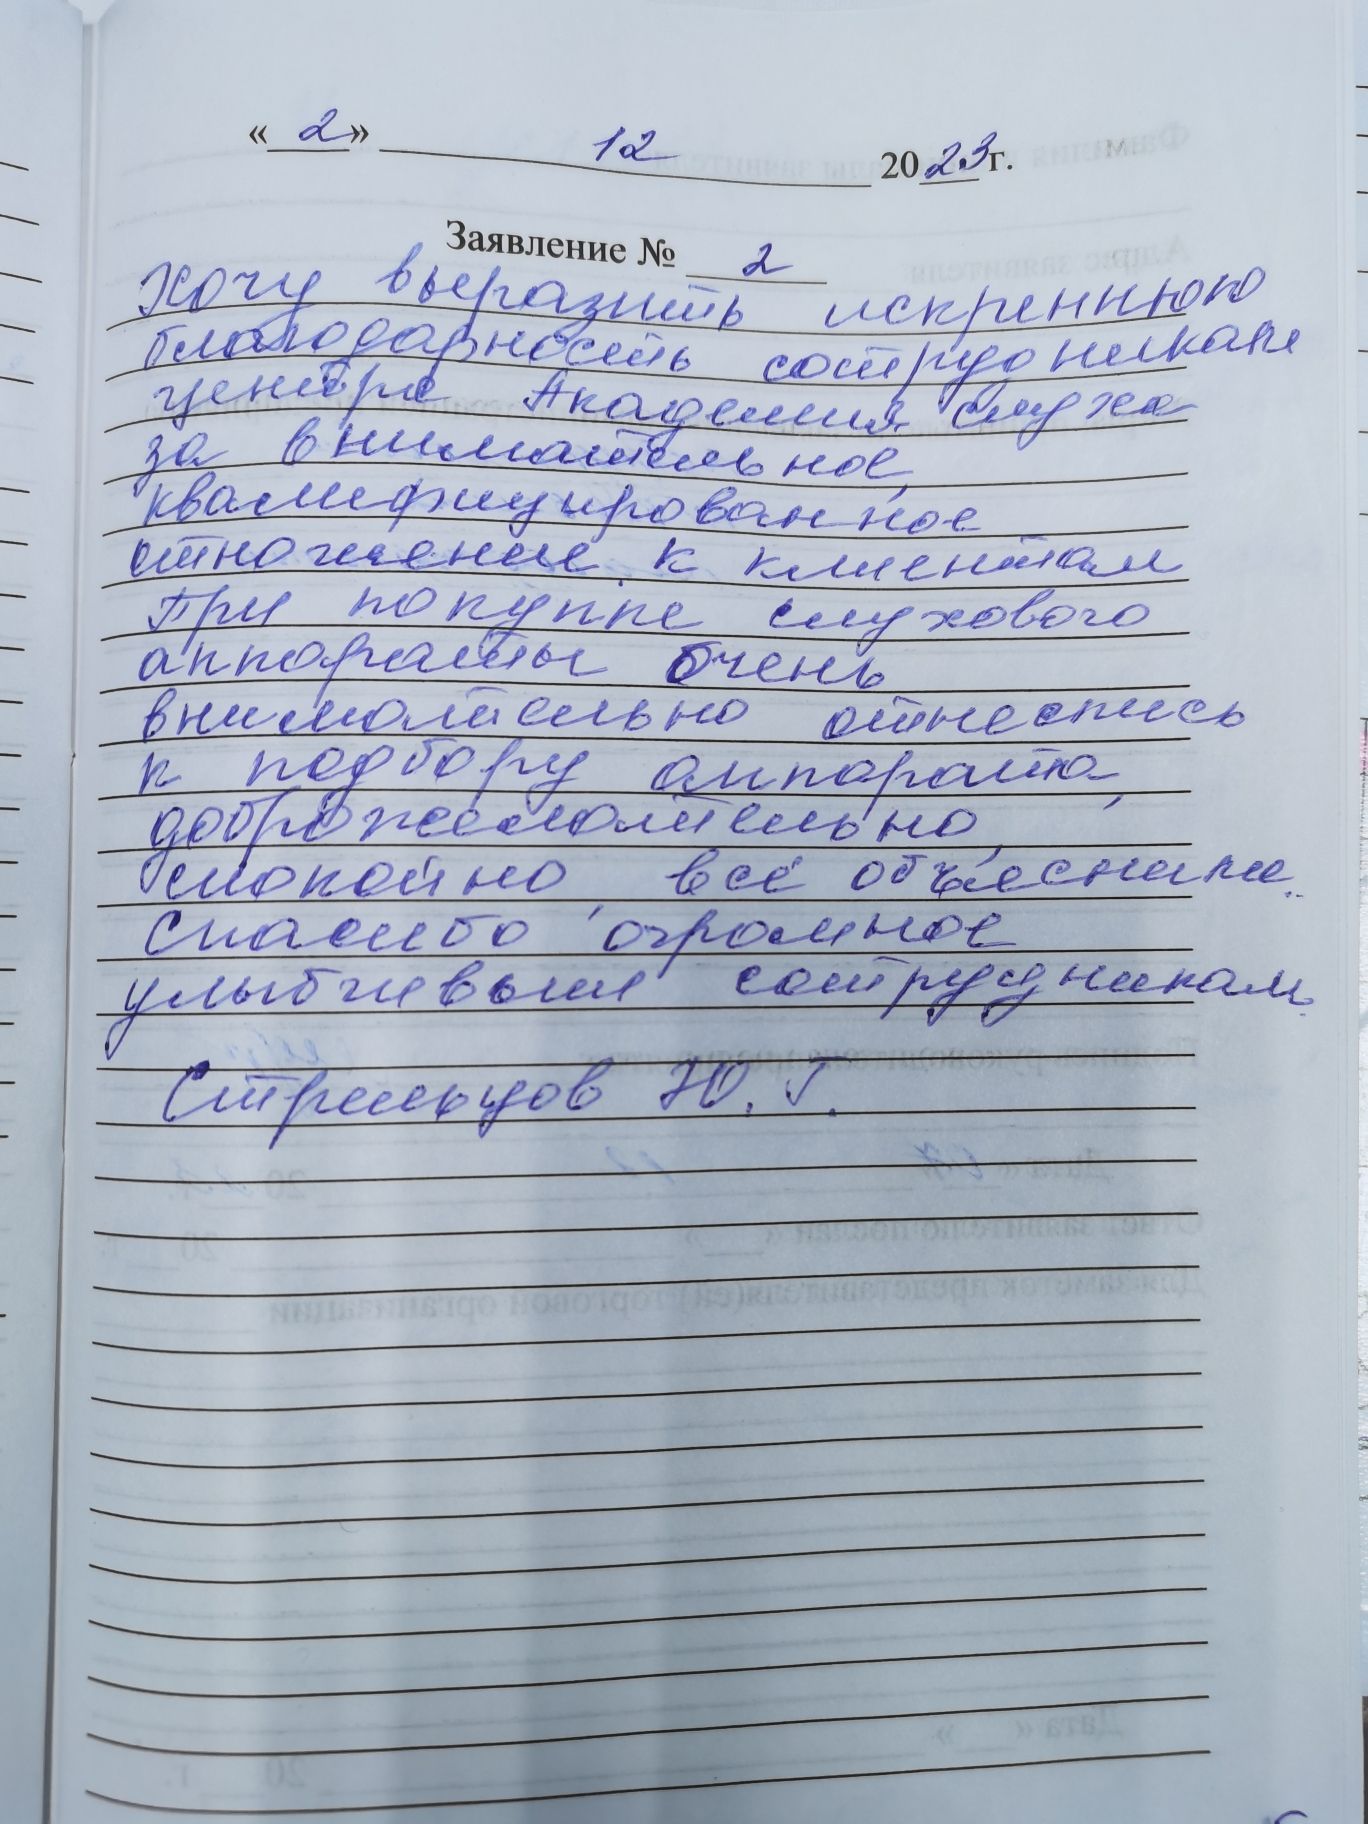 « 2 » 12 2023 г.
Заявление № 2
Хочу выразить искреннюю
благодарность сотрудникам
центра Академия слуха
за внимательное,
квалифицированное
отношение к клиентам
При покупке слухового
аппараты очень
внимательно отнеслись
к подбору аппарата,
доброжелательно,
спокойно, всё объеснили.
Спасибо огромное
улыбчивым сотрудникам.
Стрельцов Ю. Г.